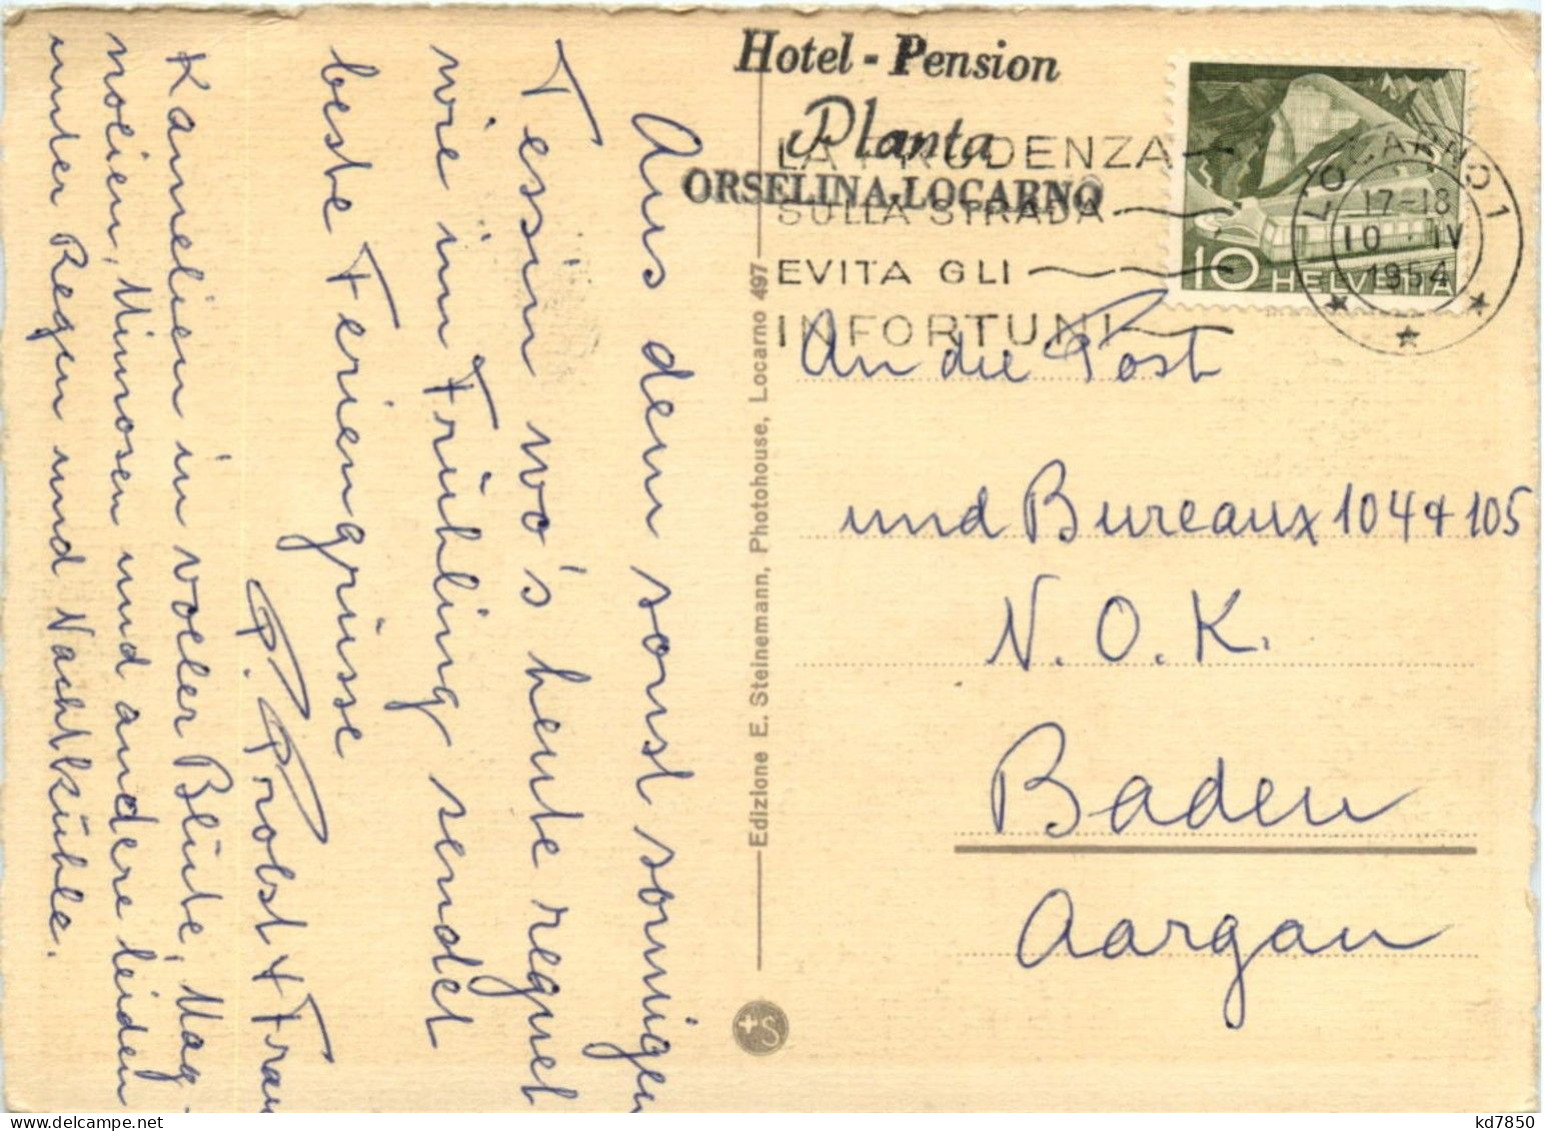 Hotel - Pension
Planta
ORSELINA-LOCARNO
LA PRUDENZA
SULLA STRADA
EVITA GLI
INFORTUNI
LOCARNO 1
17-18
10 · IV
1954
10 HELVETIA
Aus dem sonst sonnigen
Tessin wo's heute regnet
wie im Frühling sendet
beste Feriengrüsse
P. Probst + Frau
Kamelien in voller Blüte, Mag-
nolien, Mimosen und andere leiden
unter Regen und Nachtkühle.
Edizione E. Steinemann, Photohouse, Locarno 497
+S
An die Post
und Bureaux 104 + 105
N.O.K.
Baden
Aargau
kd7850